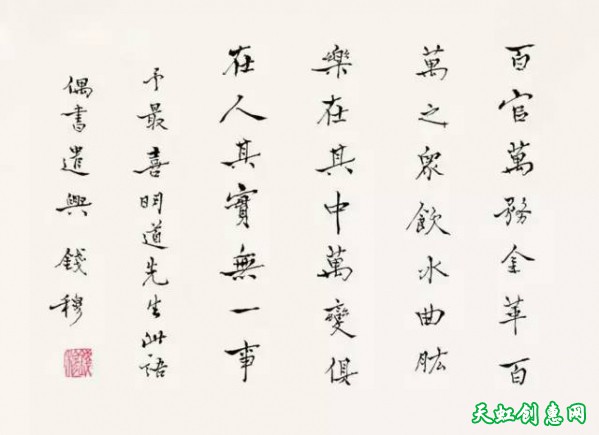 百官萬務金革百
萬之眾飲水曲肱
樂在其中萬變俱
在人其實無一事
予最喜明道先生此語
偶書遣興 錢穆
天虹创惠网